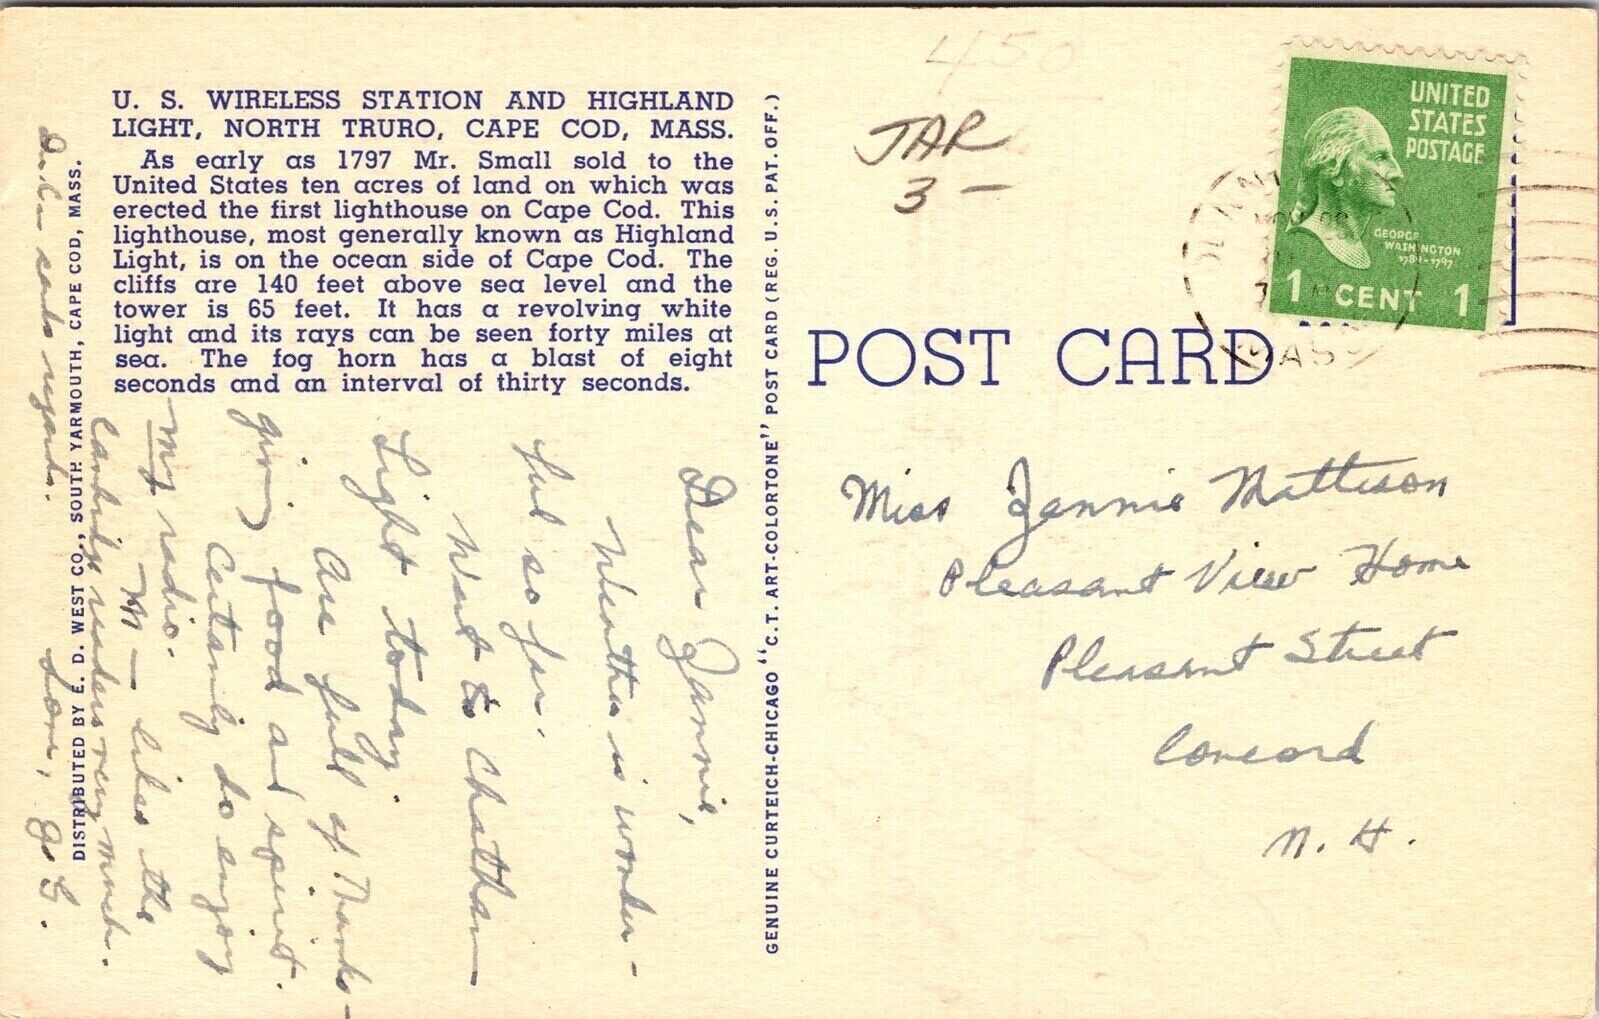 U. S. WIRELESS STATION AND HIGHLAND
LIGHT, NORTH TRURO, CAPE COD, MASS.
As early as 1797 Mr. Small sold to the
United States ten acres of land on which was
erected the first lighthouse on Cape Cod. This
lighthouse, most generally known as Highland
Light, is on the ocean side of Cape Cod. The
cliffs are 140 feet above sea level and the
tower is 65 feet. It has a revolving white
light and its rays can be seen forty miles at
sea. The fog horn has a blast of eight
seconds and an interval of thirty seconds.
Dear Jannie,
Weather is wonder-
ful so far.
Went to Chatham
Light today.
Are full of Thanks-
giving food and spirit.
Certainly do enjoy
my radio.
M— likes the
Cambridge readers very much.
Love,
sends regards.
DISTRIBUTED BY E. D. WEST CO., SOUTH YARMOUTH, CAPE COD, MASS.
GENUINE CURTEICH-CHICAGO "C.T. ART-COLORTONE" POST CARD (REG. U.S. PAT. OFF.)
450
JAR
3 —
POST CARD
UNITED
STATES
POSTAGE
GEORGE
WASHINGTON
1789-1797
1 CENT 1
MASS
Miss Jannie Mattison
Pleasant View Home
Pleasant Street
Concord
N. H.